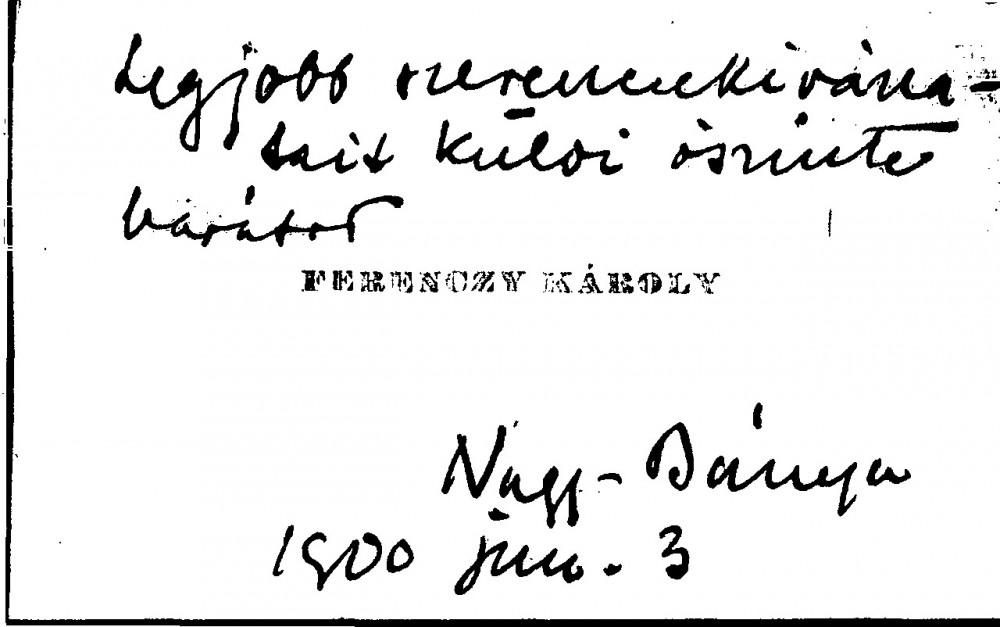 Legjobb szerencsekivána-
tait küldi öszinte
barátod
FERENCZY KÁROLY
Nagy-Bánya
1900 jun. 3